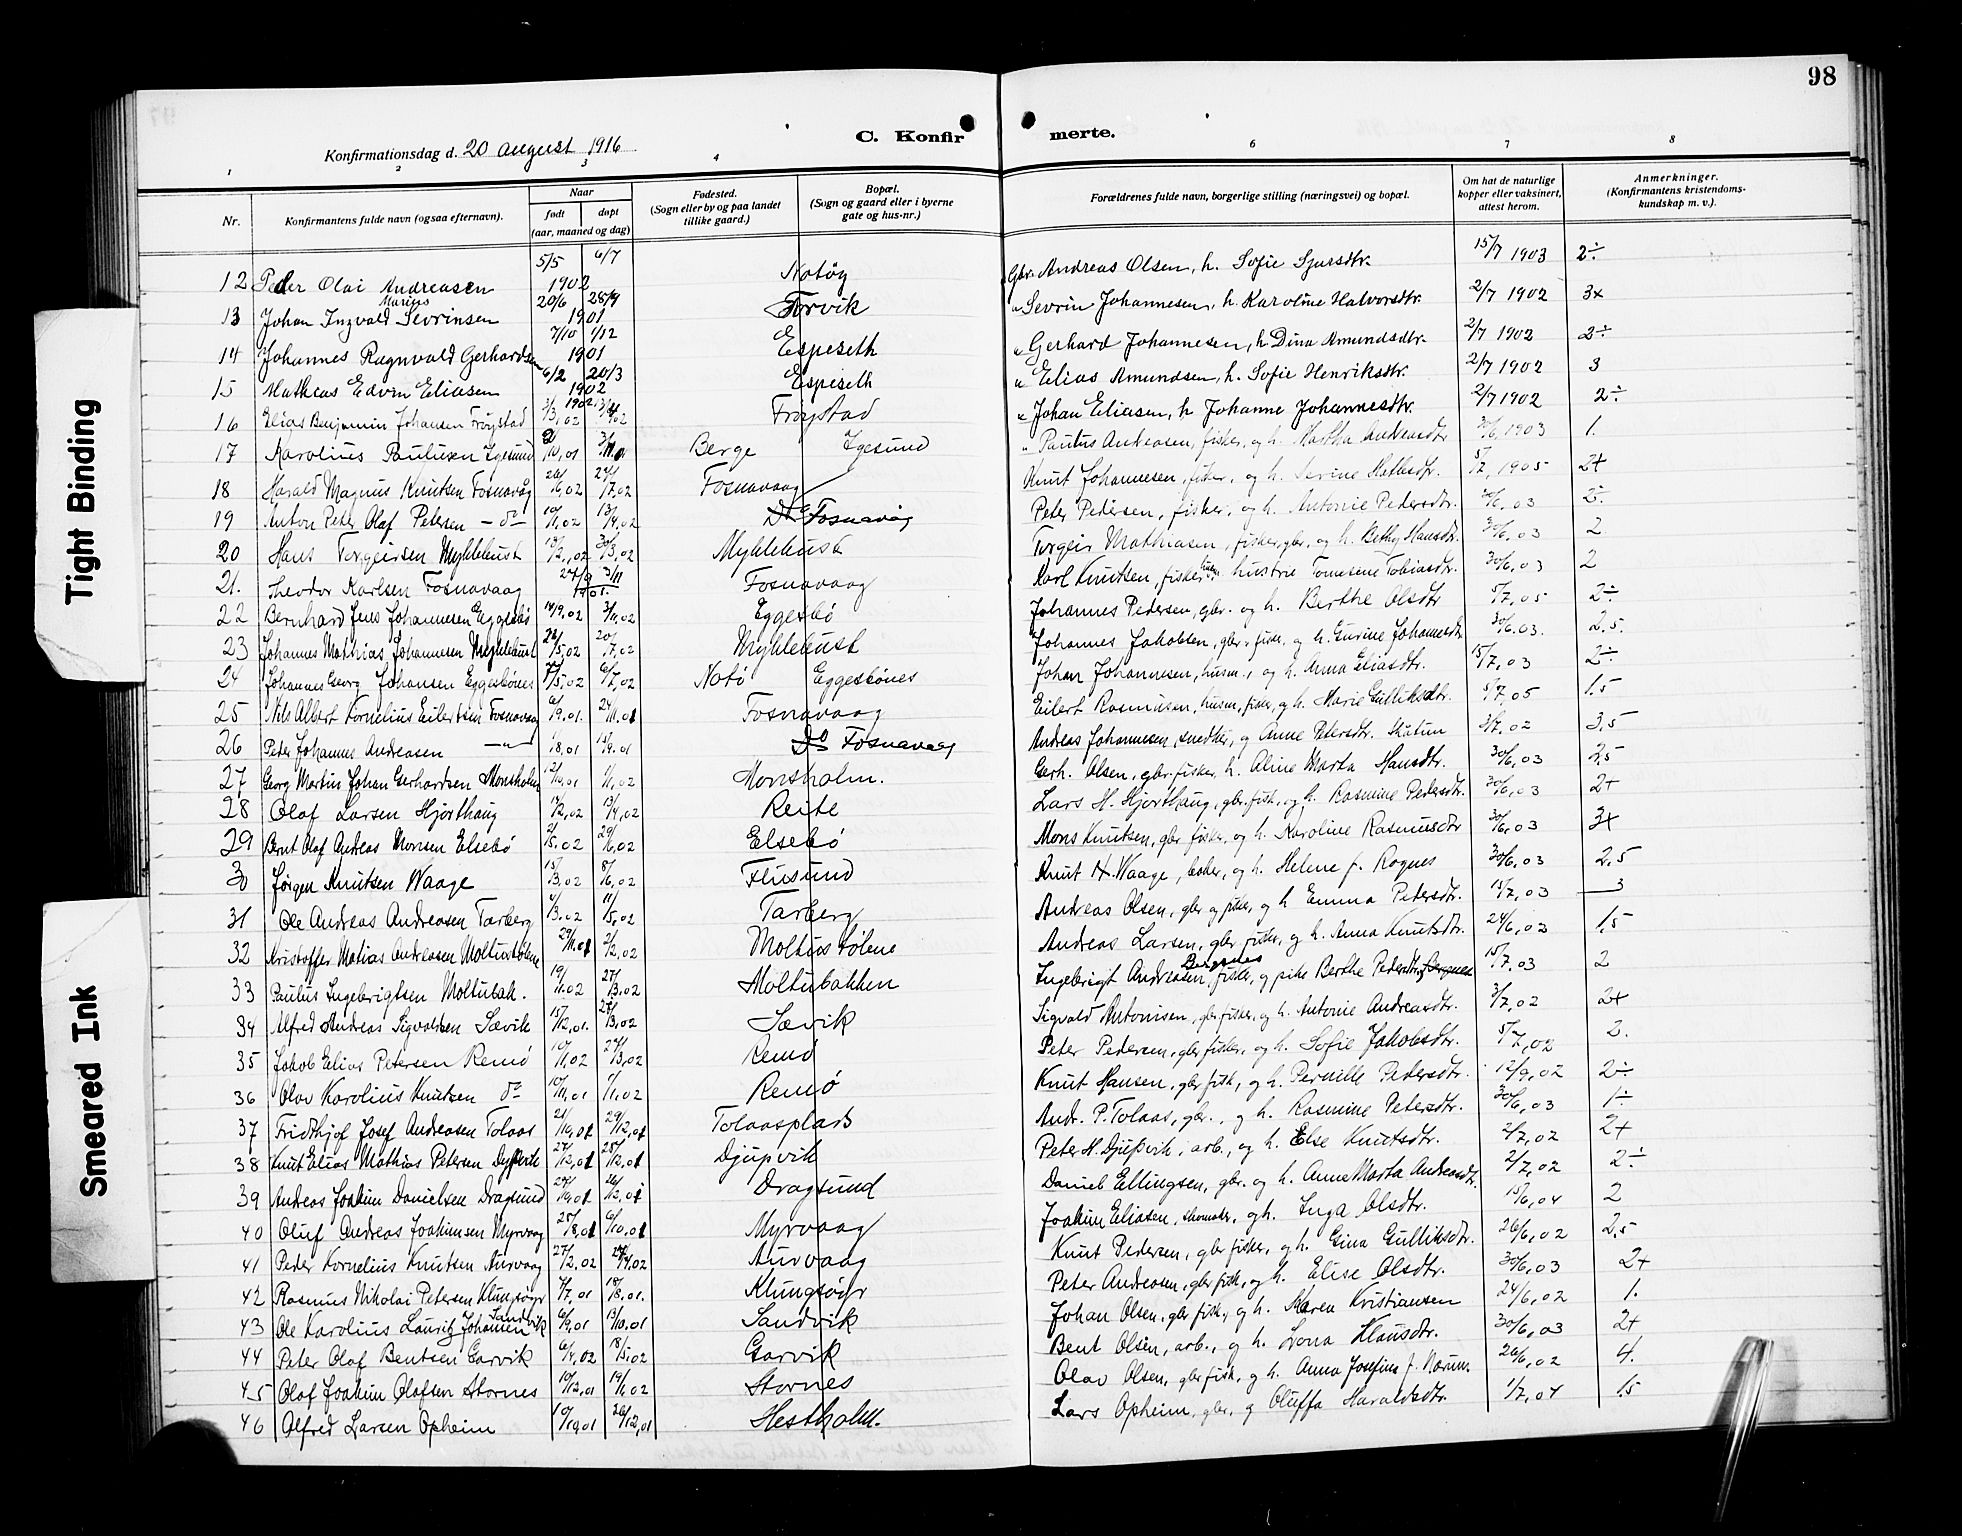 98
C. Konfirmerte.
Konfirmationsdag d. 20 august 1916
1 2 3 4 6 7 8
Nr. Konfirmantens fulde navn (ogsaa efternavn). Naar født døpt (aar, maaned og dag) Fødested. (Sogn eller by og paa landet tillike gaard.) Bopæl. (Sogn og gaard eller i byerne gate og hus-nr.) Forældrenes fulde navn, borgerlige stilling (næringsvei) og bopæl. Om hat de naturlige kopper eller vaksinert, attest herom. Anmerkninger. (Konfirmantens kristendomskundskap m. v.).
12 Peder Olai Andreasen 5/5 1902 6/7 Notøy Gbr. Andreas Olsen, h. Sofie Sjursdtr. 15/7 1903 2÷
13 Johan Ingvald Marius Sevrinsen 20/6 1901 28/9 Torvik " Sevrin Johannesen, h. Karoline Halvorsdtr. 2/7 1902 3+
14 Johannes Ragnvald Gerhardsen 7/10 1901 1/12 Espeseth " Gerhard Johannesen, h Dina Amundsdtr. 2/7 1902 2÷
15 Mathias Edvin Eliasen 6/2 1902 20/3 Espeseth " Elias Amundsen, h. Sofie Henriksdtr. 2/7 1902 3
16 Elias Benjamin Johansen Frøystad 3/3, 02 Frøystad " Johan Eliasen, h Johanne Johannesdtr. 2/7 1902 2÷
17 Karolius Paulusen Igesund Berge Igesund " Paulus Andreasen, fisker, og h. Martha Andreasdtr 30/6, 1903 1.
18 Harald Magnus Knutsen Fosnavåg 26/6, 02 24/7, 02 Fosnavaag Knut Johannesen, fisker, og h. Serine 5/7, 1905 2+
19 Anton Peter Olaf Petersen - do 10/1, 02 13/4, 02 Do Fosnavåg Peter Pedersen, fisker, og h. Antonie Pedersdtr. 30/6, 03 2÷
20 Hans Torgeirsen Myklebust 13/2, 02 30/3, 02 Myklebust Torgeir Mathiasen, fisker, gbr, og h. Bethy Hansdtr. 30/6, 03 2
21. Theodor Karlsen Fosnavaag 27/9 3/11 1901. Fosnavaag Karl Knutsen, fisker, husm. hustru Tomesene Tobiasdtr. 30/6, 03 2
22 Bernhard Jens Johannesen Eggesbö 14/9, 02 3/11, 02 Eggesbö Johannes Pedersen, gbr. og h. Berthe Olsdtr 5/7, 05 2÷
23 Johannes Mathias Johannesen Myklebust 22/5, 02 20/7, 02 Myklebust Johannes Jakobsen, gbr. fisk. og h. Gurine Johannesdtr 30/6. 03. 2.5.
24 Johannes Georg Johansen Eggesbönes 6/7, 02 Notö Eggesbönes Johan Johannesen, husm., og h. Anna Eliasdtr. 15/7, 03 2÷
25 Nils Albert Kornelius Eilertsen Fosnavaag 6/9. 01. 24/11. 01 Fosnavaag Eilert Rasmusen, husm, fisker, og h. Marie Gulliksdtr. 5/7, 05 1.5
26 Peter Johannes Andreasen —"— 1/8, 01 15/9. 01 Do Fosnavaag Andreas Johannesen, snedker, og Anne Petersdtr. Skatun 2/7. 02 3,5
27 Georg Martin Johan Gerhardsen Monsholm 12/10, 01 1/1, 02 Monsholm. Gerh. Olsen, gbr. fisker, h. Aline Marta Hansdtr. 30/6, 03 2,5
28 Olaf Larsen Hjorthaug 14/2, 02 13/4, 02 Reite Lars H. Hjorthaug, gbr. fisk., og h. Rasmine Pedersdtr. 30/6, 03 2+
29 Bernt Olaf Andreas Monsen Elsebö 2/5. 02 29/6, 02 Elsebö Mons Knutsen, gbr fisker, og h. Karoline Rasmusdtr 30/6, 03 3+
30 Jørgen Knutsen Waage 15/3, 02 8/6, 02 Flusund Knut H. Waage, og h. Helene f. Rognes 30/6, 03 2,5
31 Ole Andreas Andreasen Tarberg 4/3, 02 11/5, 02 Tarberg Andreas Olsen, gbr og fisker, og h Emma Petersdtr. 14/7, 03 3
32 Kristoffer Matias Andreasen Moltustølene 29/11. 01 2/2, 02 Moltustølene Andreas Larsen, gbr fisker, og h. Anna Knutsdtr. 24/6, 03 1,5
33 Paulus Ingebrigtsen Moltubak. 19/1. 02 27/3, 02 Moltubakken Ingebrigt Andreasen Bergnes fisker, og pike Berthe Pedersdtr, Bergnes 15/7, 03 2
34 Alfred Andreas Sigvaldsen Sævik 15/12, 01. 24/3, 02 Sævik Sigvald Antonisen, gbr fisker, og h. Antonie Andreasdtr. 3/7, 02 2+
35 Jakob Elias Petersen Remö 10/1, 02 27/3, 02 Remö Peter Pedersen, gbr fisker, og h. Sofie Jakobsdtr. 5/7, 02 2.
36 Olav Karolius Knutsen do 10/11, 01 1/1, 02 Remö Knut Hansen, gbr fisk, og h. Pernille Petersdtr. 12/9, 02 2÷
37 Fridthjof Josef Andreasen Tolaas 21/10, 01 29/12, 01 Tolaasplads Andr. P. Tolaas, gbr., og h. Rasmine Petersdtr. 30/6, 03 1÷
38 Knut Elias Mathias Petersen Djupvik 27/12, 01 25/12, 01 Djupvik Peter H. Djupvik, arb., og h. Else Knutsdtr. 2/7, 02 2+
39 Andreas Joakim Danielsen Dragsund 29/10, 01 26/12, 01 Dragsund Daniel Ellingsen, gbr. og h. Anne Marta Andreasdtr. 2/7, 02 2÷
40 Oluf Andreas Joakimsen Myrvaag 25/8, 01 6/10, 01 Myrvaag Joakim Eliasen, skomaker, og h. Inga Olsdtr. 15/6, 04 2
41 Peder Kornelius Knutsen Aurvaag 27/2, 02 27/4, 02 Aurvaag Knut Pedersen, gbr fisker, og h. Gina Gulliksdtr. 26/6, 02 2,5
42 Rasmus Nikolai Petersen Klungsøyr 7/7, 01 18/8, 01. Klungsøyr Peter Andreasen, gbr fisk, og h. Elise Olsdtr. 30/6, 03 2+
43 Ole Karolius Lauritz Johansen Sandvik 6/9, 01 13/10. 01 Sandvik Johan Olsen, gbr fisk, og h. Maren Kristiansen 24/6, 02 1.
44 Peter Olaf Bentsen Garvik 6/4, 02 18/5, 02 Garvik Bent Olsen, arb., og h. Lona Klausdtr. 30/6, 03 2+
45 Olaf Joakim Olafsen Stornes 10/12, 01 19/1, 02 Stornes Olav Olsen, gbr fisk, og h. Anna Josefine f. 26/6, 02 4.
46 Alfred Larsen Opheim 10/10, 01 26/12, 01 Hestholm. Lars Opheim, gbr, og Oluffa Haraldsdtr. 1/7, 04 1.5
Tight Binding
Smeared Ink